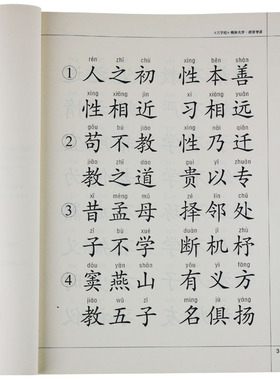 《三字经》
rén zhī chū xìng běn shàn
① 人之初 性本善
xìng xiāng jìn xí xiāng yuǎn
性相近 习相远
gǒu bú jiào xìng nǎi qiān
苟不教 性乃迁
jiào zhī dào guì yǐ zhuān
教之道 贵以专
xī mèng mǔ zé lín chǔ
③ 昔孟母 择邻处
zǐ bù xué duàn jī zhù
子不学 断机杼
dòu yān shān yǒu yì fāng
④ 窦燕山 有义方
jiào wǔ zǐ míng jù yáng
教五子 名俱扬
3